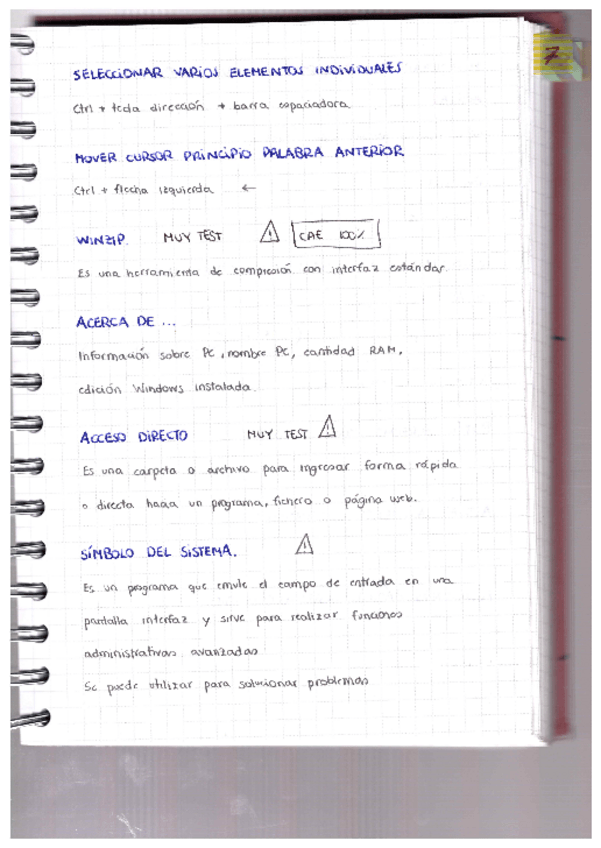 7
SELECCIONAR VARIOS ELEMENTOS INDIVIDUALES
Ctrl + tecla dirección + barra espaciadora
MOVER CURSOR PRINCIPIO PALABRA ANTERIOR
Ctrl + flecha izquierda ←
WINZIP. MUY TEST ⚠ CAE 100%
Es una herramienta de compresión con interfaz estándar.
ACERCA DE ...
Información sobre PC, nombre PC, cantidad RAM,
edición Windows instalada.
ACCESO DIRECTO MUY TEST ⚠
Es una carpeta o archivo para ingresar forma rápida
o directa hacia un programa, fichero o página web.
SÍMBOLO DEL SISTEMA. ⚠
Es un programa que emule el campo de entrada en una
pantalla interfaz y sirve para realizar funciones
administrativas avanzadas
Se puede utilizar para solucionar problemas